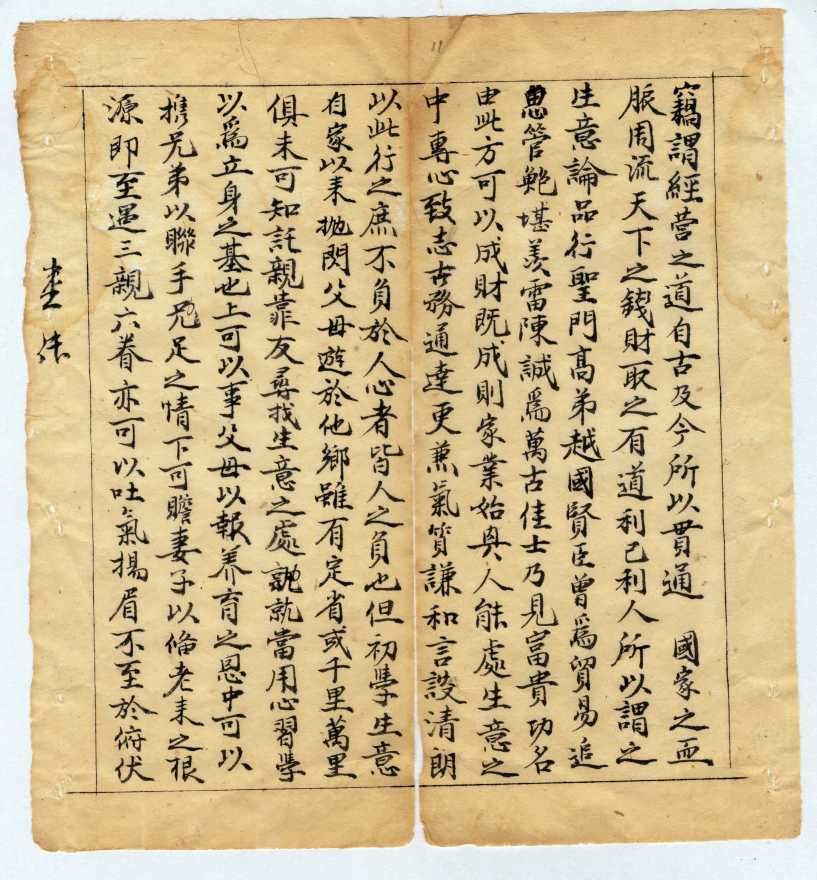 11
竊謂經营之道自古及今所以貫通　國家之血
脈周流天下之錢財取之有道利己利人所以謂之
生意論品行聖門髙弟越國賢臣曾爲貿易追
思管鲍堪羡雷陳誠爲萬古佳士乃見富貴功名
由此方可以成財既成則家業始興人能處生意之
中專心致志古務通達更兼氣質謙和言談清朗
以此行之庶不負於人心者皆人之負也但初學生意
自家以来抛閃父母遊於他鄉雖有定省或千里萬里
俱未可知託親靠友尋找生意之處 就當用心習學
以爲立身之基也上可以事父母以報养育之恩中可以
携兄弟以聯手足之情下可贍妻子以俻老来之根
源即至遇三親六眷亦可以吐氣揚眉不至於俯伏